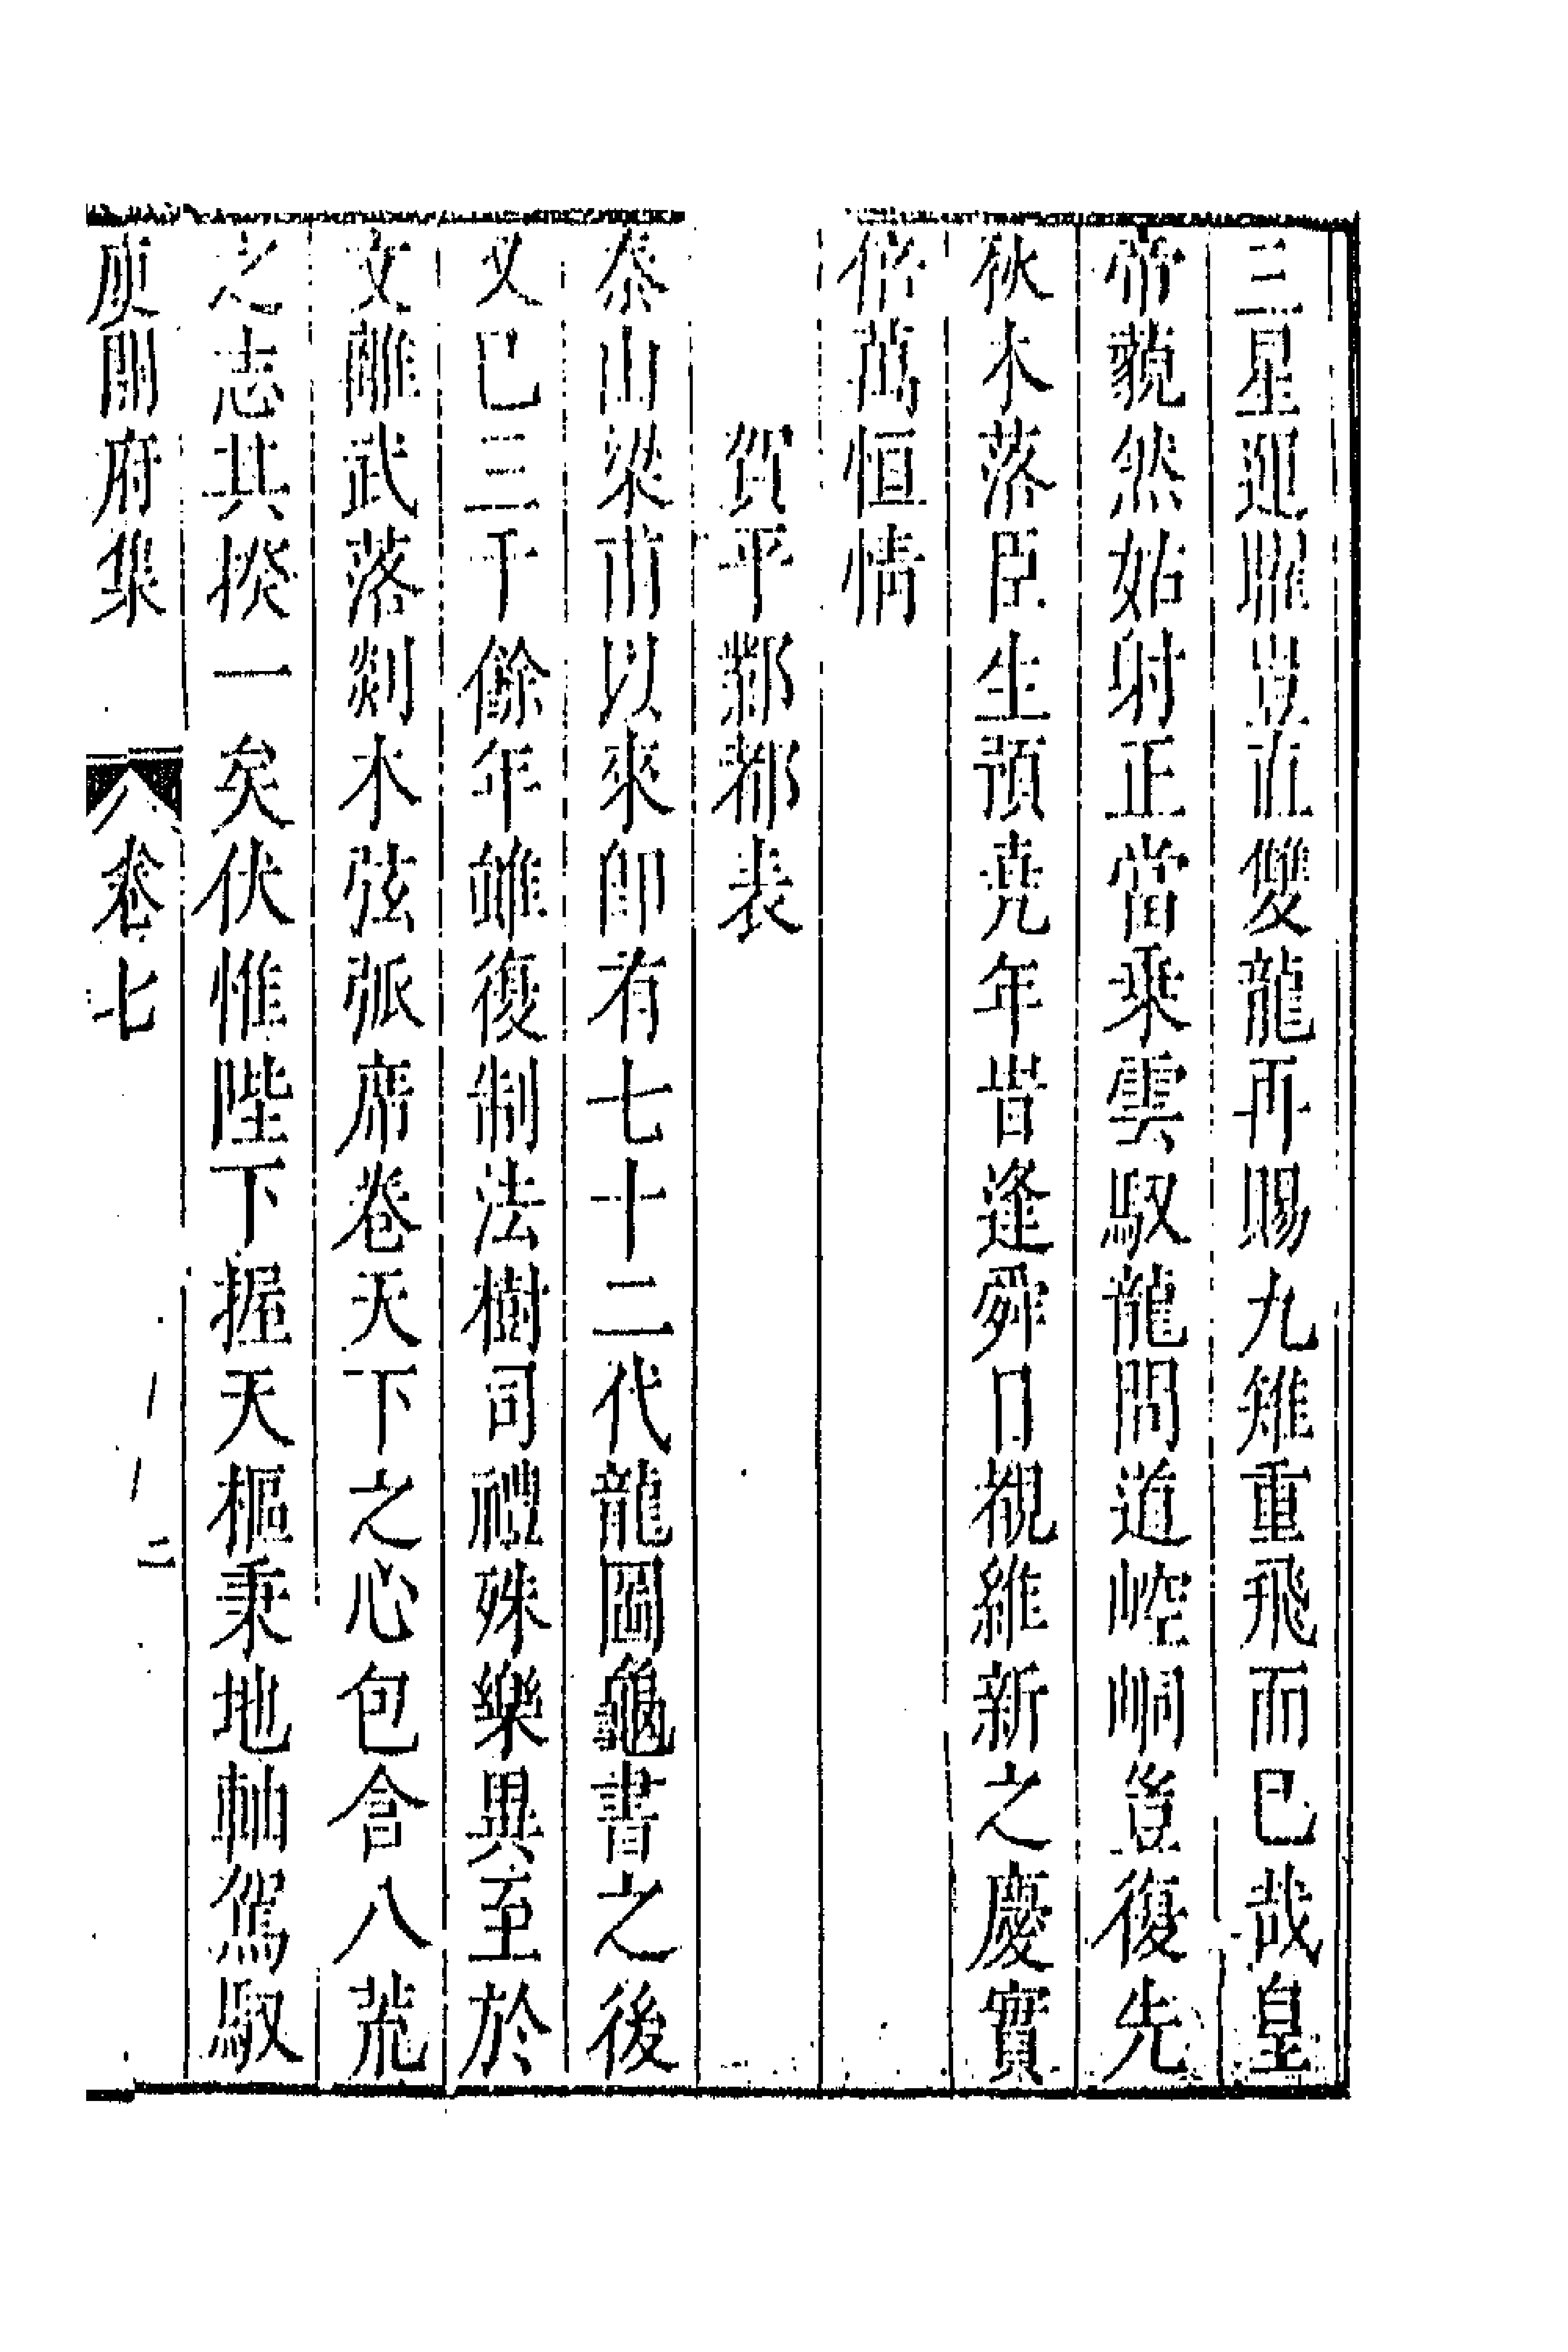 三星迴照豈直雙龍再賜九雉重飛而已哉皇
帝藐然姑射正當乘雲馭龍問道崆峒豈復先
秋木落臣生預堯年昔逢舜日覩維新之慶實
倍萬恒情
賀平鄴都表
泰山梁甫以來卽有七十二代龍圖龜書之後
又已三千餘年雖復制法樹司禮殊樂異至於
文離武落剡木弦弧席卷天下之心包含八荒
之志其揆一矣伏惟陛下握天樞秉地軸駕馭
庾開府集 卷七 二